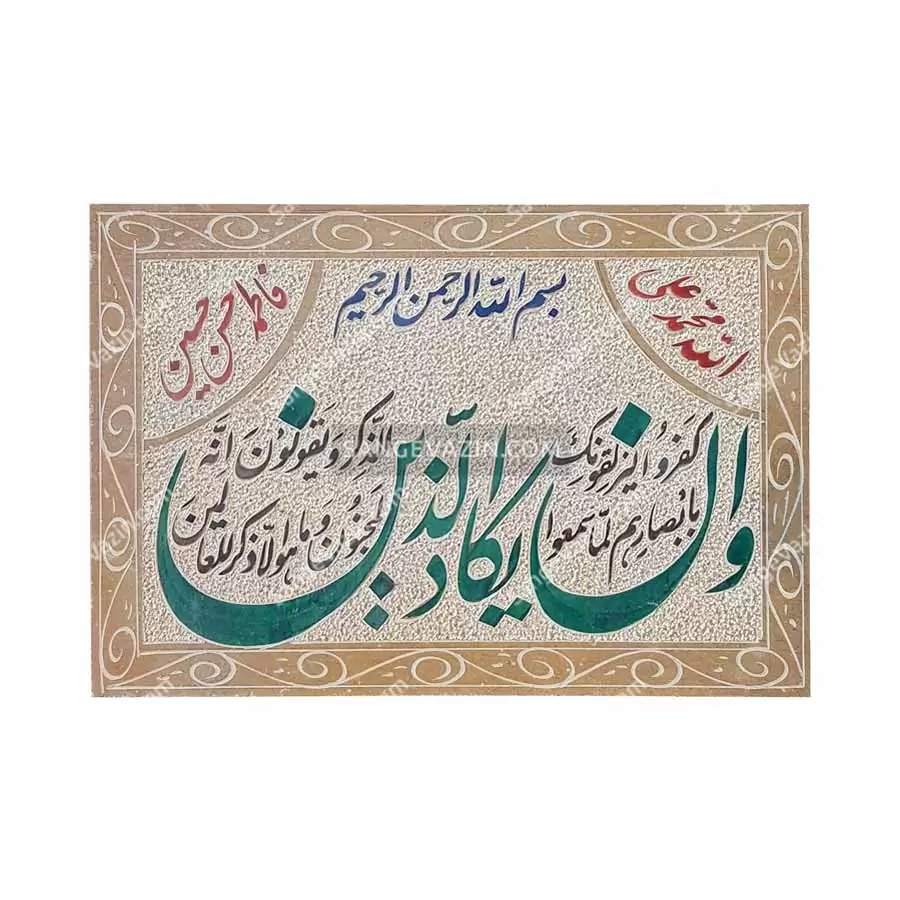 بسم الله الرحمن الرحیم
الله محمد علی
فاطمه حسن حسین
وان یکاد الذین
کفروا لیزلقونک
بابصارهم لما سمعوا
الذکر و یقولون انه
لمجنون و ما هو الا ذکر للعالمین
SANGEVAZIN.COM